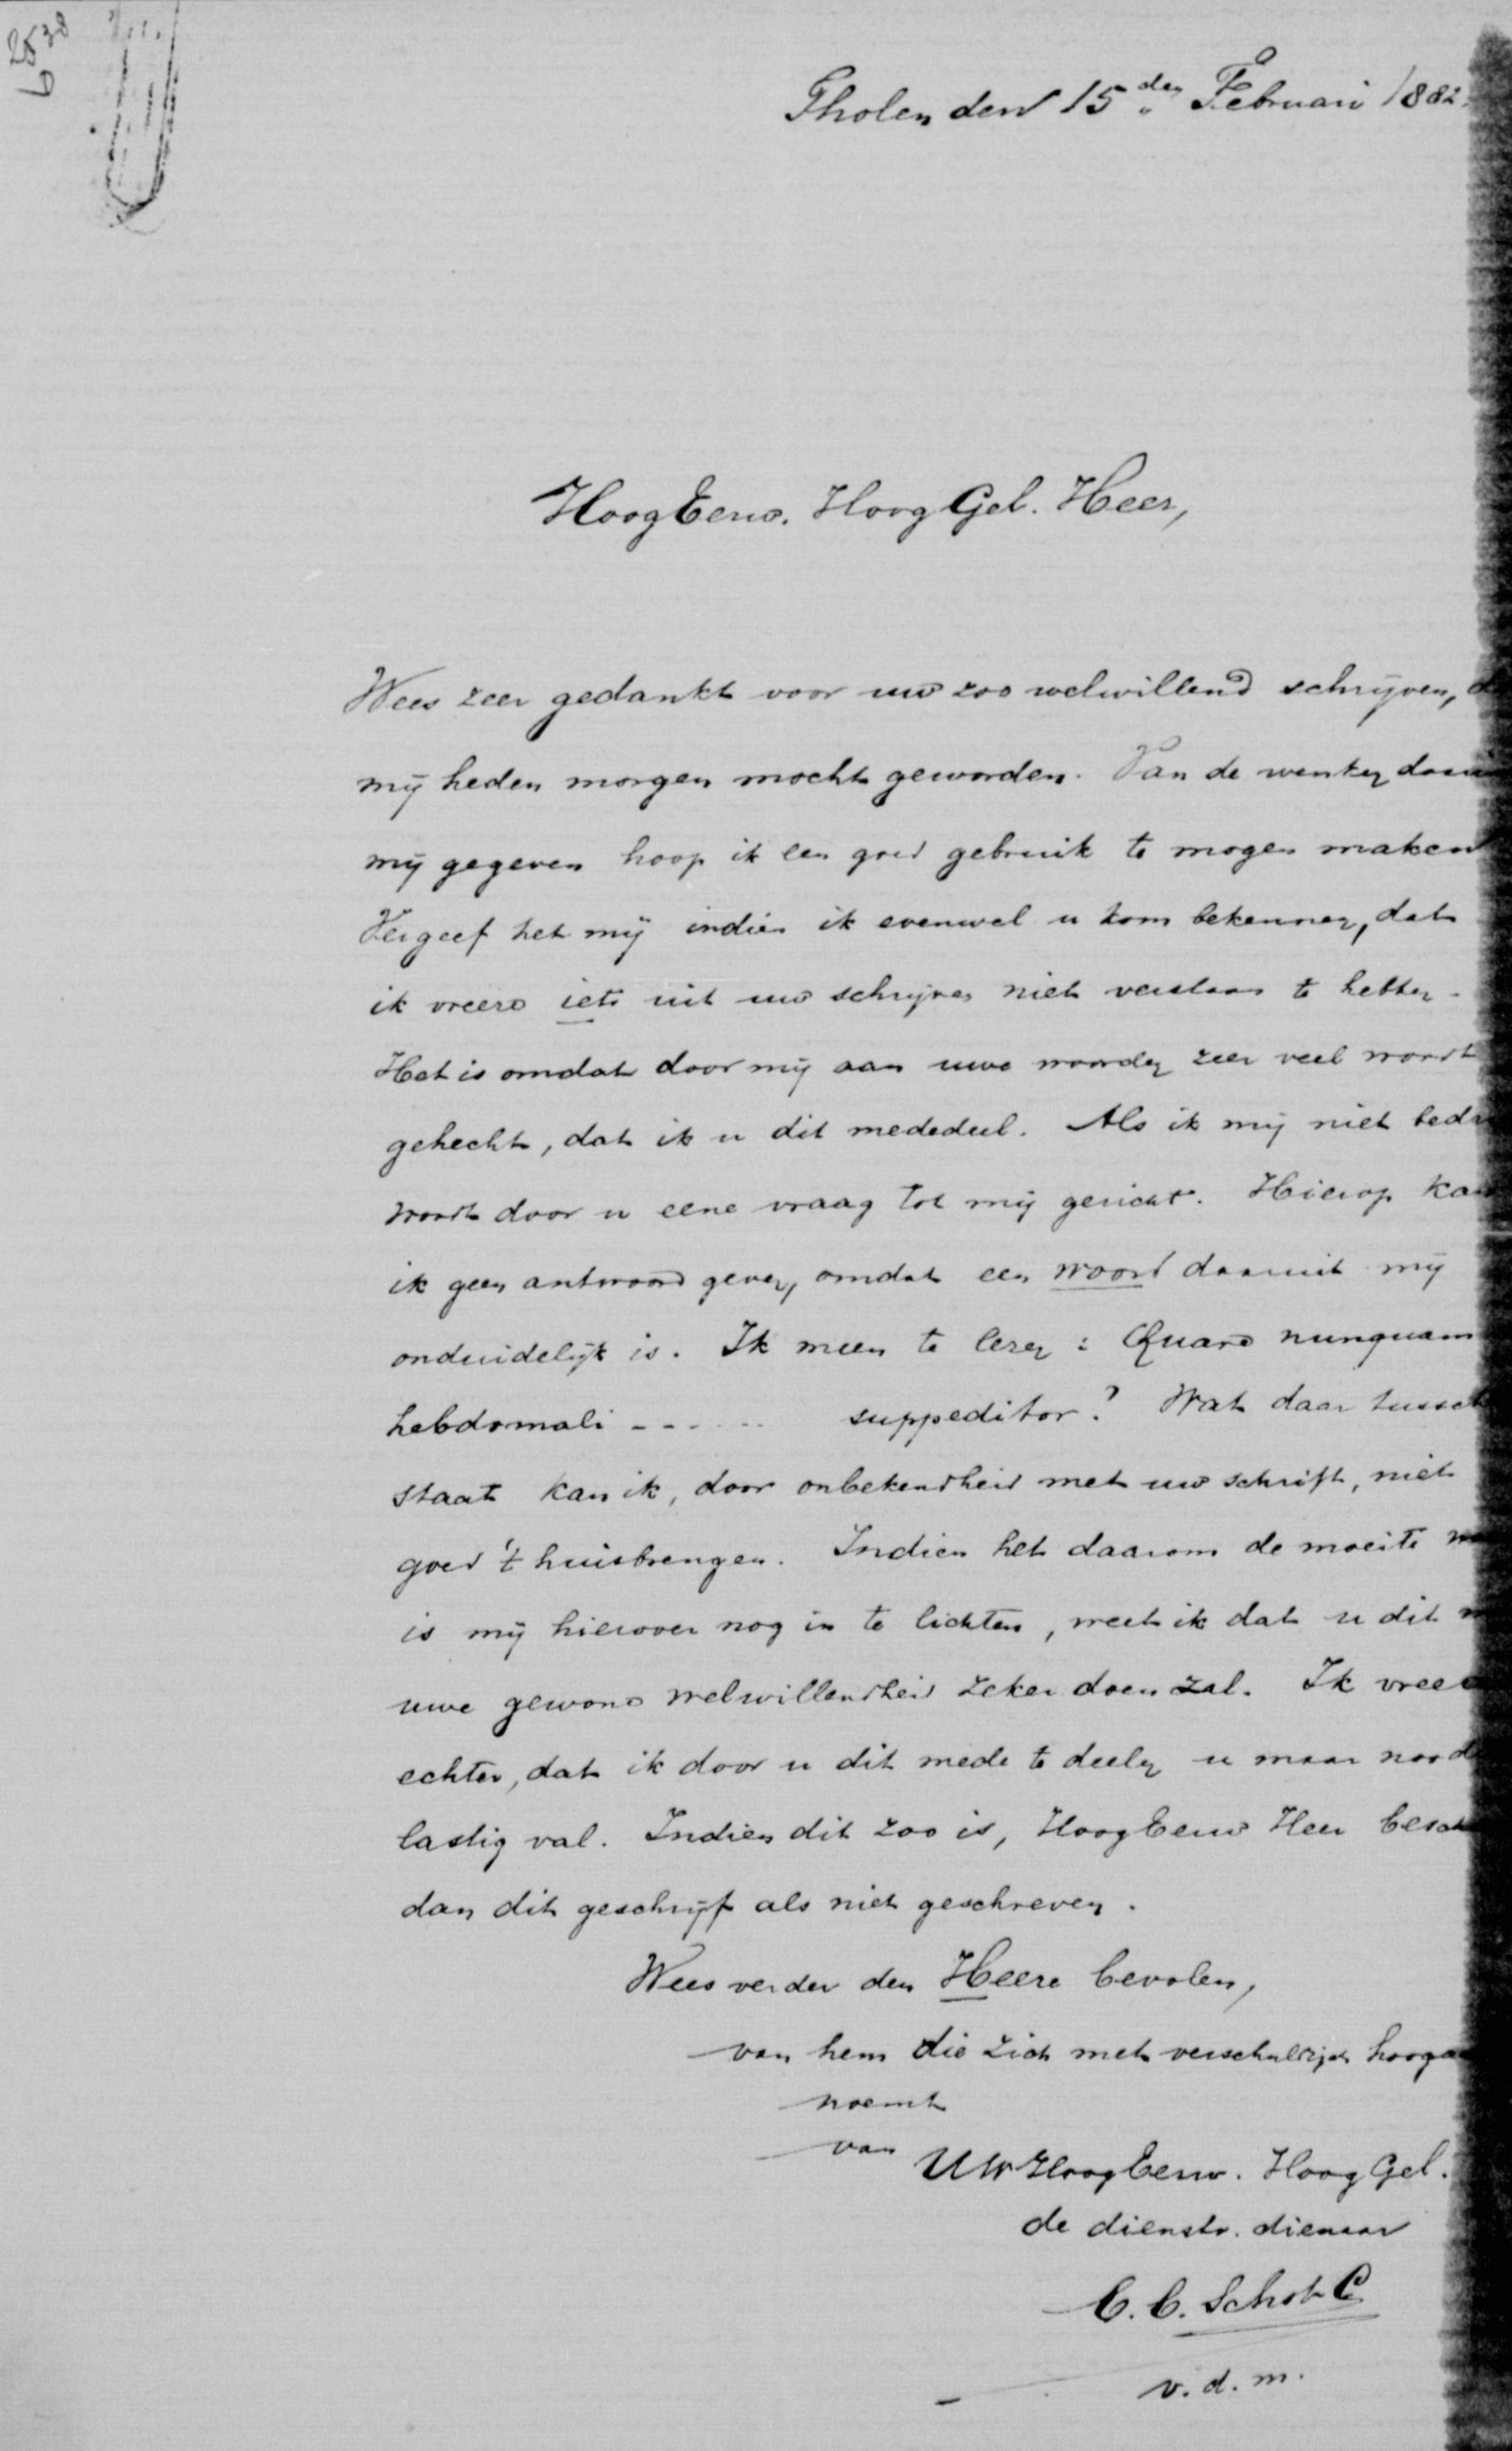 2538
6
Tholen den 15den Februari 1882.
HoogEerw. HoogGel. Heer,
Wees zeer gedankt voor uw zoo welwillend schrijven,
mij heden morgen mocht geworden. Van de wenken
mij gegeven hoop ik een goed gebruik te mogen maken
Vergeef het mij indien ik evenwel u kom bekennen, dat
ik vreese iets uit uw schrijven niet verstaan te hebben.
Het is omdat door mij aan uwe woorden zeer veel wordt
gehecht, dat ik u dit mededeel. Als ik mij niet
wordt door u eene vraag tot mij gericht. Hierop kan
ik geen antwoord geven, omdat een woord daaruit mij
onduidelijk is. Ik meen te lezen: Quare nunquam
hebdomali ------ suppeditor? Wat daar
staat kan ik, door onbekendheid met uw schrift, niet
goed 't huisbrengen. Indien het daarom de moeite
is mij hierover nog in te lichten, weet ik dat u dit
uwe gewone welwillendheid zeker doen zal. Ik
echter, dat ik door u dit mede te deelen u maar
lastig val. Indien dit zoo is, HoogEerw Heer
dan dit geschrijf als niet geschreven.
Wees verder den Heere bevolen,
van hem die zich met verschuldigde
noemt
van UW HoogEerw. HoogGel.
de dienstv. dienaar
C. C. Schot C
v. d. m.